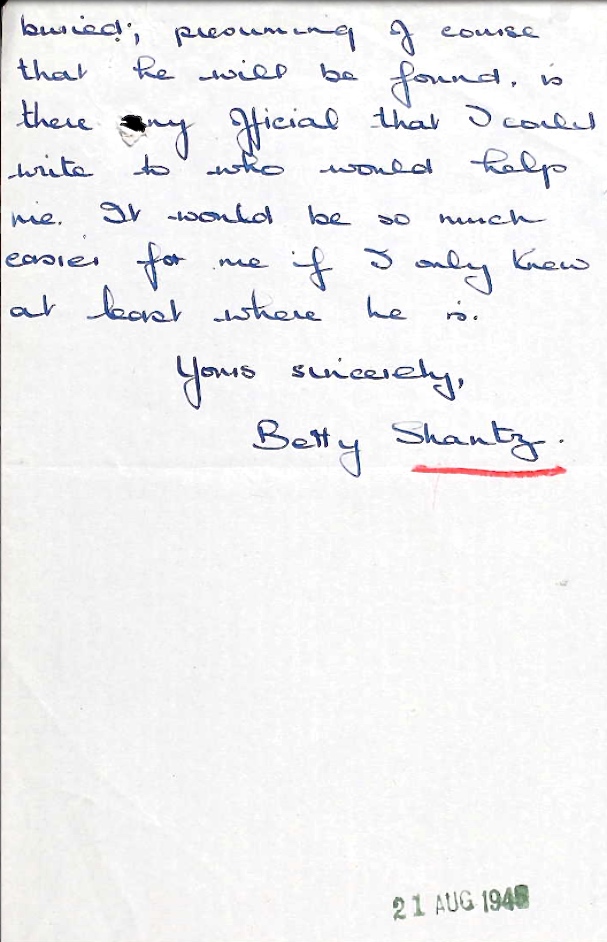 buried; presuming of course
that he will be found, is
there any official that I could
write to who would help
me. It would be so much
easier for me if I only knew
at least where he is.
Yours sincerely,
Betty Shantz.
21 AUG 1945